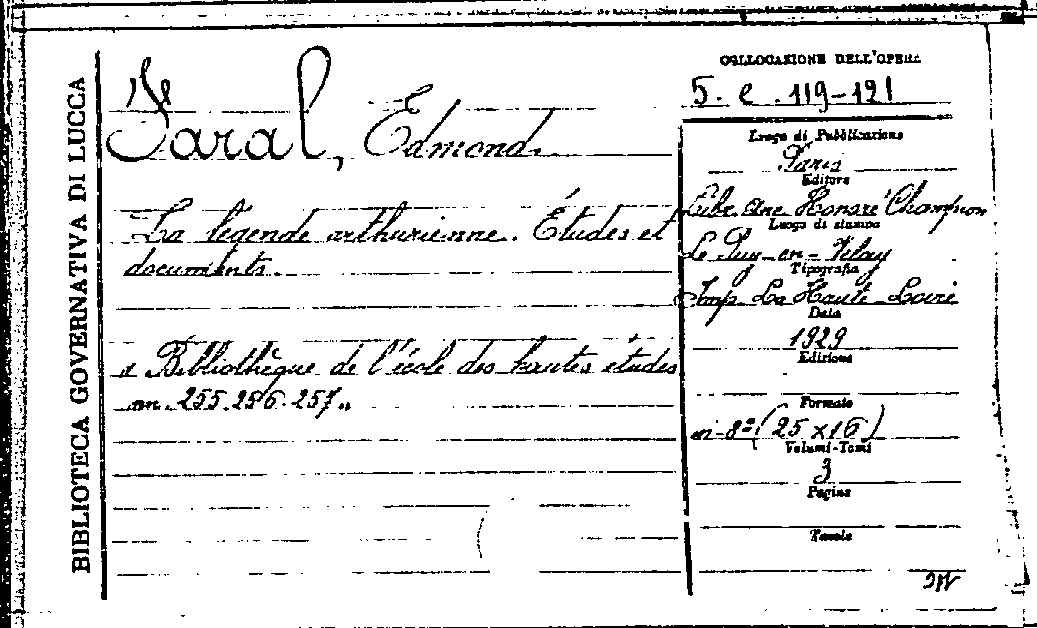 BIBLIOTECA GOVERNATIVA DI LUCCA
Faral, Edmond.
La légende arthurienne. Études et
documents.
« Bibliothèque de l'école des hautes études
nn. 255.256.257 »
COLLOCAZIONE DELL'OPERA
5. e. 119-121
Luogo di Pubblicazione
Paris
Editore
Librairie Honoré Champion
Luogo di stampa
Le Puy-en-Velay
Tipografia
Imp. La Haute-Loire
Data
1929
Edizione
Formato
in-8º (25 x 16)
Volumi-Tomi
3
Pagine
Tavole